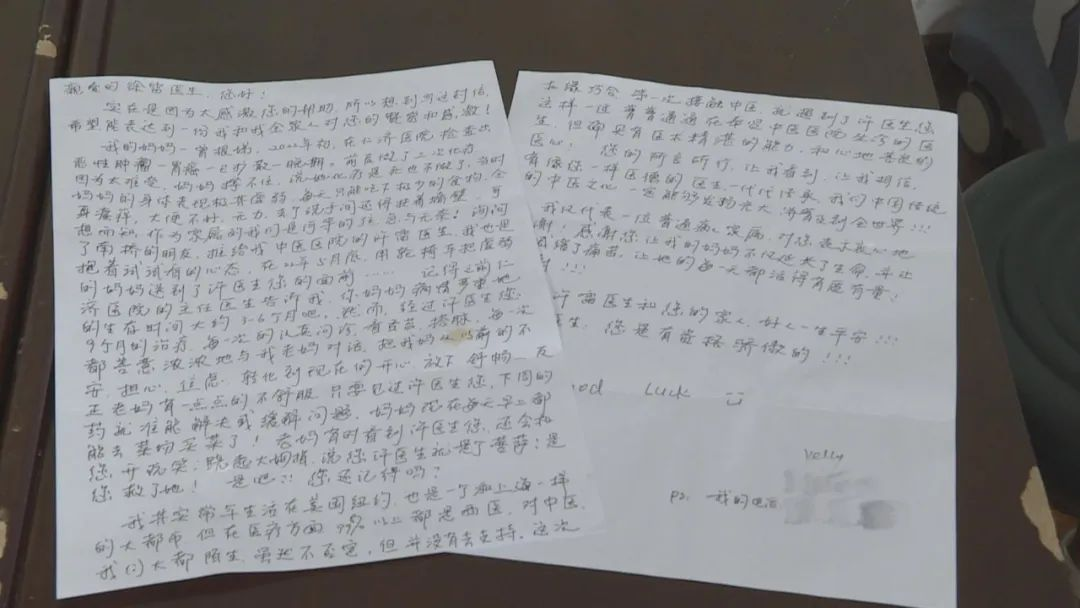 亲爱的徐雷医生,您好!
实在是因为太感激您的帮助,所以想到写这封信,
希望能表达到一份我和我全家人对您的赞赏和感激!
我的妈妈—曾根娣,2022年初,在仁济医院检查出
恶性肿瘤—胃癌—已扩散—晚期。前后做了二次化疗
因为太难受,妈妈撑不住,说她心死是死也不做了,当时
妈妈的身体表现极其虚弱,每天只能吃下极少的食物,全
身瘙痒,大便不好,无力,去个洗手间还得扶着墙壁,可
想而知,作为家属的我们是何等的狂急与无奈!询问
了南桥的朋友,推给我中医医院的许雷医生,我也是
抱着试试看的心态,在22年5月底,用轮椅车把虚弱
的妈妈送到了许医生您的面前…… 记得之前仁
济医院的主任医生告诉我,你妈妈病情严重地
的生存时间大约3-6个月吧,然而,经过许医生您
9个月的治疗,每一次的认真问诊,看舌苔,搭脉,每一次
都善意浓浓地与我老妈对话,把我妈从以前的不
安,担心,焦虑,转化到现在的开心 放下 舒畅—反
正老妈有一点点的不舒服,只要见过许医生您,下周的
药就准能解决或缓解问题,妈妈现在每天早上都
能去菜场买菜了!老妈有时看到许医生您,还会和
您开玩笑:跷起大姆指,说您许医生就是个菩萨:是
您救了她! 是吧!!您还记得吗?
我其实常年生活在美国纽约,也是一个和上海一样
的大都市,但在医疗方面99%以上都是西医,对中医,
我们大都陌生,虽然不否定,但并没有去支持,这次
机缘巧合 第一次接触中医,就遇到了许医生您
这样一位普普通通在奉贤中医医院坐诊的医
生,但确具有医术精湛的能力,和心地善良的
医心! 您的所言所行,让我看到,让我相信,
有像您一样医德的医生,一代代传承,我们中国传统
的中医之心一定能够发扬光大,清香及到全世界!!!
我仅代表一位普通病人家属,对您表示衷心地
谢!感谢您,让我的妈妈不仅延长了生命,并让
缓了痛苦,让她的每一天都活得有质有量!
!!!
许雷医生和您的家人,好人一生平安!!!
医生,您是有资格骄傲的!!!
ood Luck
Velly
PS: 我的电话